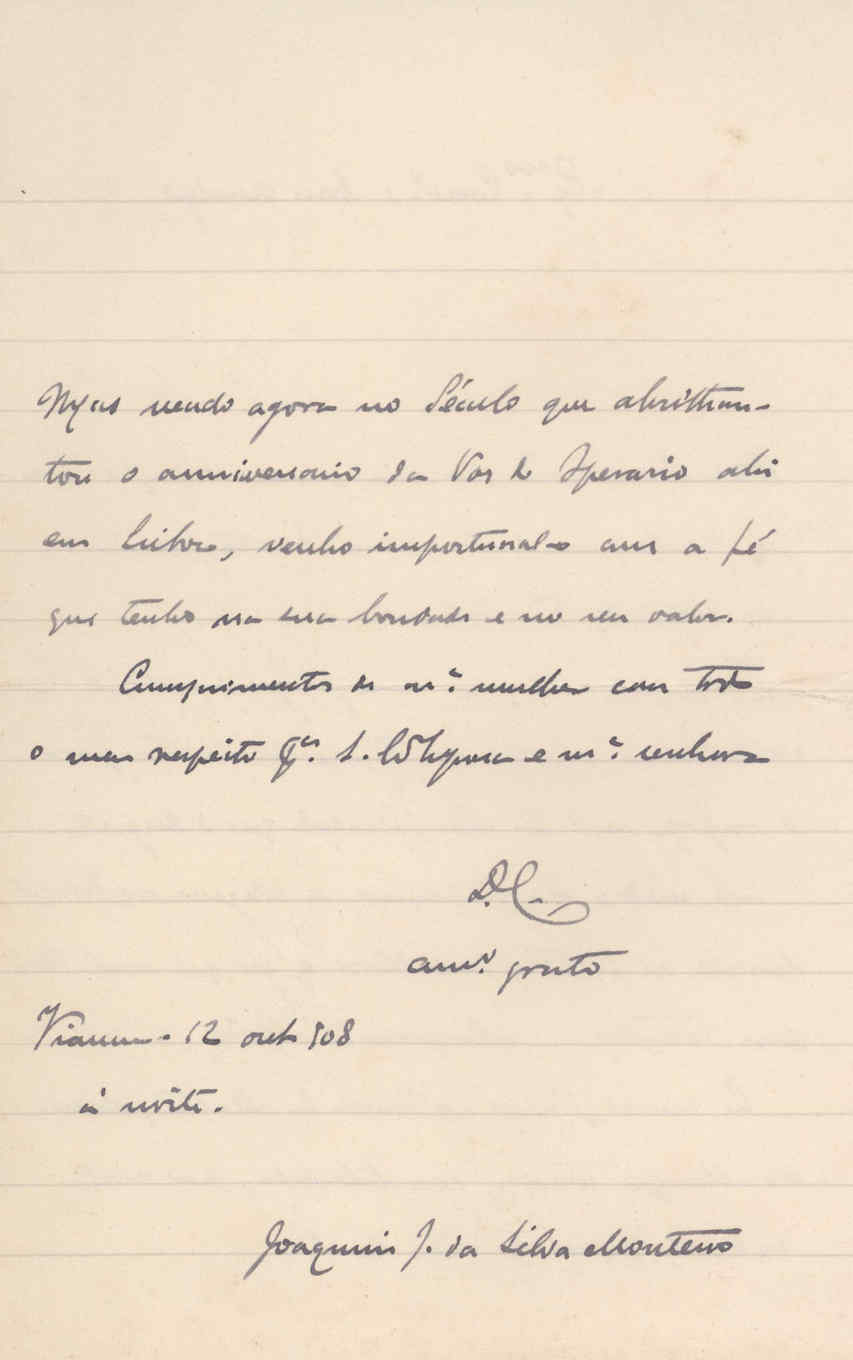 Mas vendo agora no Século que abrilhan-
tou o anniversario da Voz do Operario ahi
em Lisboa, venho importunal-o com a fé
que tenho na sua bondade e no seu valor.
Cumprimentos de m.ª mulher com todo
o meu respeito p.ª S. Ex.ª esposa e m.ª senhora
D. C.
am.º grato
Vianna - 12 out 908
á noite.
Joaquim J. da Silva Monteiro